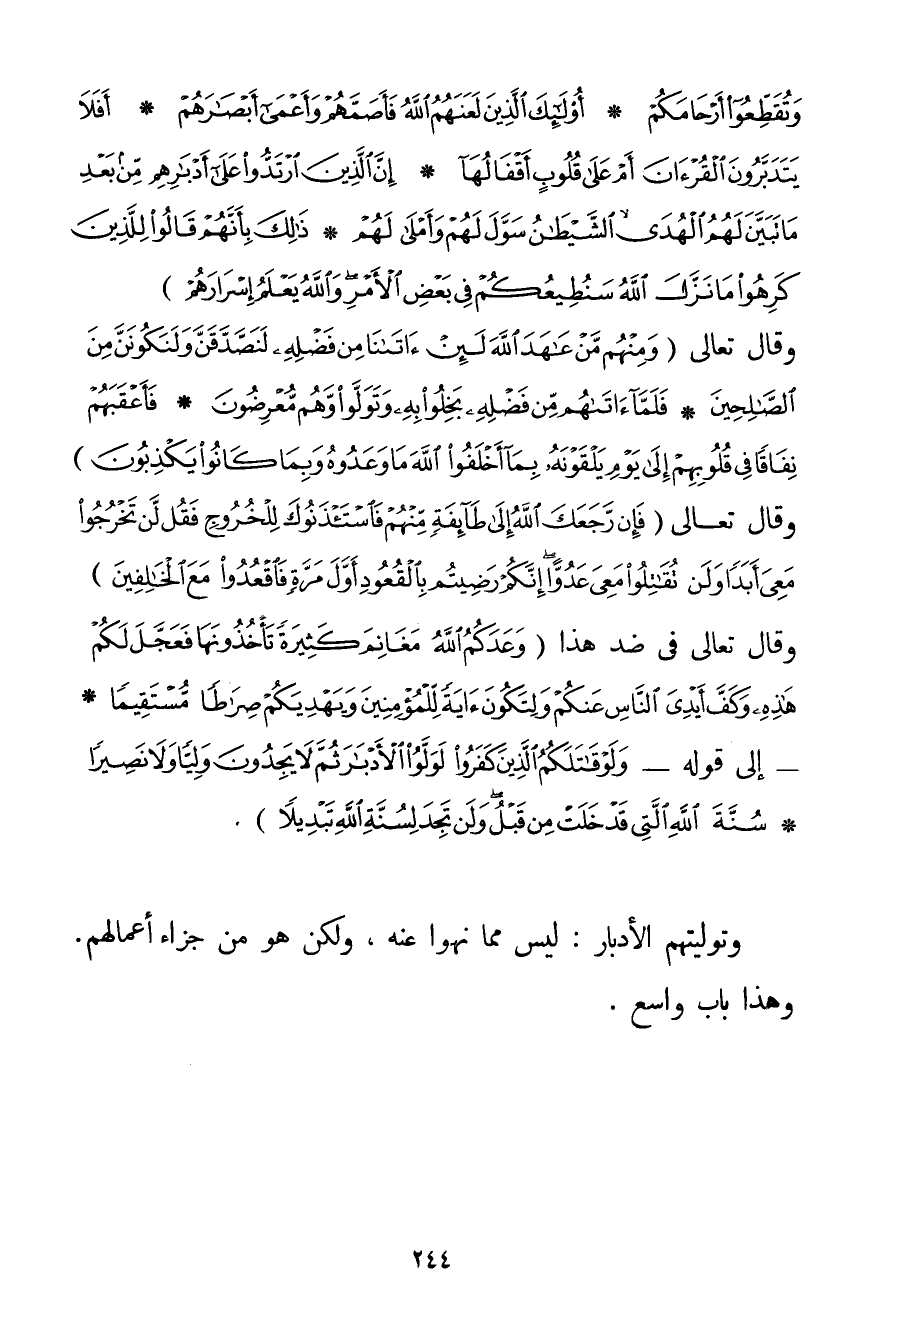 وَتُقَطِّعُوٓا۟ أَرْحَامَكُمْ * أُو۟لَٰٓئِكَ ٱلَّذِينَ لَعَنَهُمُ ٱللَّهُ فَأَصَمَّهُمْ وَأَعْمَىٰٓ أَبْصَٰرَهُمْ * أَفَلَا
يَتَدَبَّرُونَ ٱلْقُرْءَانَ أَمْ عَلَىٰ قُلُوبٍ أَقْفَالُهَآ * إِنَّ ٱلَّذِينَ ٱرْتَدُّوا۟ عَلَىٰٓ أَدْبَٰرِهِم مِّنۢ بَعْدِ
مَا تَبَيَّنَ لَهُمُ ٱلْهُدَى ۙ ٱلشَّيْطَٰنُ سَوَّلَ لَهُمْ وَأَمْلَىٰ لَهُمْ * ذَٰلِكَ بِأَنَّهُمْ قَالُوا۟ لِلَّذِينَ
كَرِهُوا۟ مَا نَزَّلَ ٱللَّهُ سَنُطِيعُكُمْ فِى بَعْضِ ٱلْأَمْرِ ۖ وَٱللَّهُ يَعْلَمُ إِسْرَارَهُمْ )
وقال تعالى ( وَمِنْهُم مَّنْ عَٰهَدَ ٱللَّهَ لَئِنْ ءَاتَىٰنَا مِن فَضْلِهِۦ لَنَصَّدَّقَنَّ وَلَنَكُونَنَّ مِنَ
ٱلصَّٰلِحِينَ * فَلَمَّآ ءَاتَىٰهُم مِّن فَضْلِهِۦ بَخِلُوا۟ بِهِۦ وَتَوَلَّوا۟ وَّهُم مُّعْرِضُونَ * فَأَعْقَبَهُمْ
نِفَاقًا فِى قُلُوبِهِمْ إِلَىٰ يَوْمِ يَلْقَوْنَهُۥ بِمَآ أَخْلَفُوا۟ ٱللَّهَ مَا وَعَدُوهُ وَبِمَا كَانُوا۟ يَكْذِبُونَ )
وقال تعـالى ( فَإِن رَّجَعَكَ ٱللَّهُ إِلَىٰ طَآئِفَةٍ مِّنْهُمْ فَٱسْتَـْٔذَنُوكَ لِلْخُرُوجِ فَقُل لَّن تَخْرُجُوا۟
مَعِىَ أَبَدًا وَلَن تُقَٰتِلُوا۟ مَعِىَ عَدُوًّا ۖ إِنَّكُمْ رَضِيتُم بِٱلْقُعُودِ أَوَّلَ مَرَّةٍ فَٱقْعُدُوا۟ مَعَ ٱلْخَٰلِفِينَ )
وقال تعالى فى ضد هذا ( وَعَدَكُمُ ٱللَّهُ مَغَانِمَ كَثِيرَةً تَأْخُذُونَهَا فَعَجَّلَ لَكُمْ
هَٰذِهِۦ وَكَفَّ أَيْدِىَ ٱلنَّاسِ عَنكُمْ وَلِتَكُونَ ءَايَةً لِّلْمُؤْمِنِينَ وَيَهْدِيَكُمْ صِرَٰطًا مُّسْتَقِيمًا *
_ إلى قوله _ وَلَوْ قَٰتَلَكُمُ ٱلَّذِينَ كَفَرُوا۟ لَوَلَّوُا۟ ٱلْأَدْبَٰرَ ثُمَّ لَا يَجِدُونَ وَلِيًّا وَلَا نَصِيرًا
* سُنَّةَ ٱللَّهِ ٱلَّتِى قَدْ خَلَتْ مِن قَبْلُ ۖ وَلَن تَجِدَ لِسُنَّةِ ٱللَّهِ تَبْدِيلًا ) .
وتوليتهم الأدبار : ليس مما نهوا عنه ، ولكن هو من جزاء أعمالهم.
وهذا باب واسع .
٢٤٤